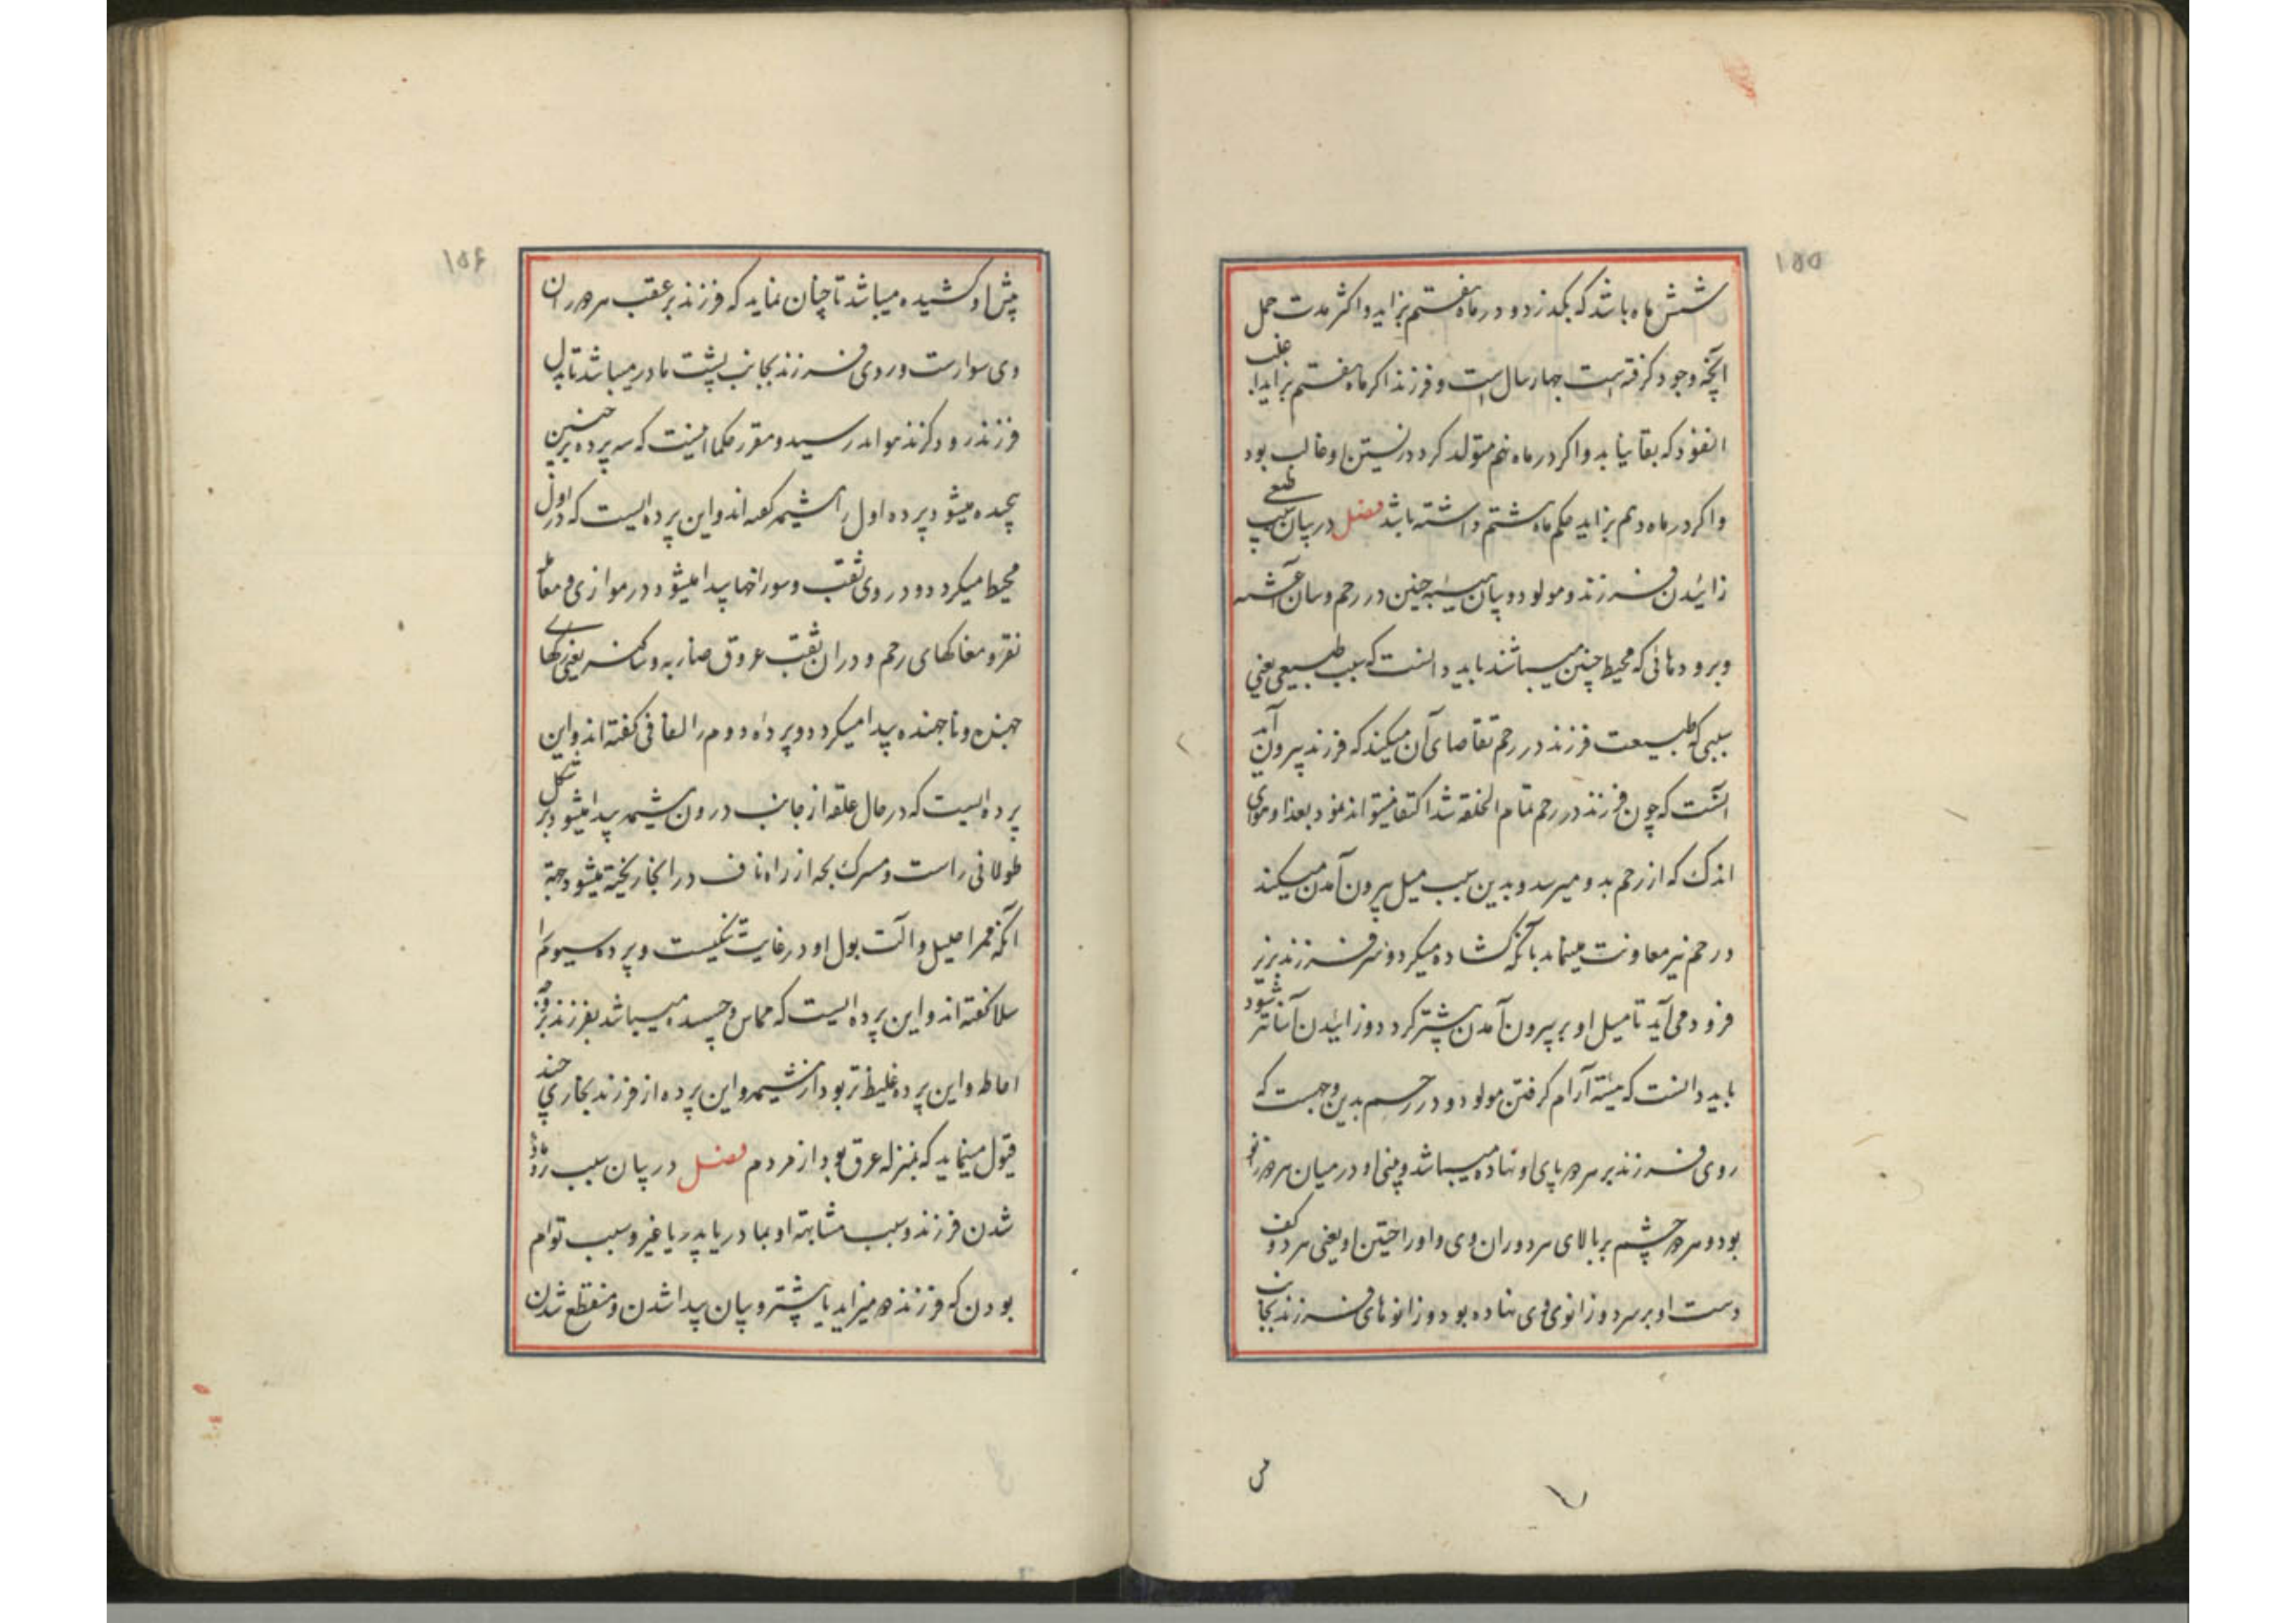 ۱۵۵
شش ماه باشد که بگذرد و در ماه هفتم بزاید و اکثر مدت حمل
آنچه وجود گرفته است چهار سال است و فرزند اگر ماه هفتم بزاید غلب
که بقا نیابد و اگر در ماه نهم متولد گردد زیستن او غالب بود
و اگر در ماه دهم بزاید حکم ماه هشتم داشته باشد فصل در بیان سبب طبیعی
زائیدن فرزند و مولود و بیان هیئته جنین در رحم و بیان اغشیه
و برودهائی که محیط جنین میباشند باید دانست که سبب طبیعی یعنی
سببی که طبیعت فرزند در رحم تقاضای آن میکند که فرزند بیرون آید
آنست که چون فرزند در رحم تمام الخلقه شد اکتفا نمیتواند نمود بغذا و هوای
اندک که از رحم بدو میرسد و بدین سبب میل بیرون آمدن میکند
و رحم نیز معاونت مینماید بانکه گشاده میگردد و سر فرزند بزیر
فرود می‌آید تا میل او بر بیرون آمدن بیشتر گردد و زائیدن آسانتر شود
باید دانست که هیئته آرام گرفتن مولود در رحم بدین وجهست که
روی فرزند بر هر دو پای او نهاده میباشد و بینی او در میان هر دو زانو
بود و هر دو چشم بر بالای هر دو ران وی و او راحتین او یعنی هر دو کف
دست او بر سر دو زانوی وی نهاده بود و زانوهای فرزند بجانب
۱۵۶
پیش او کشیده میباشد تا چنان نماید که فرزند بر عقب هر دو ران
وی سوارست و روی فرزند بجانب پشت مادر میباشد تا بدل
فرزند رود گزند هوا در رسید و مقرر حکما اینست که سه پرده بر جنین
پیچیده میشود پرده اول را مشیمه گفته‌اند و این پرده ایست که در اول
محیط میگردد و در وی ثقب و سوراخها پیدا میشود در موازی و مقابل
نقر و مغاکهای رحم و در آن ثقب عروق ضاربه و ساکنه یعنی رگهای
جهنده و ناجهنده پیدا میگردد و پرده دوم را لفافی گفته‌اند و این
پرده ایست که در حال علقه از جانب درون مشیمه پیدا میشود بر شکل
طولانی راست و سرگ بچه از راه ناف در آنجا ریخته میشود جهة
آنکه ممر احلیل و آلت بول او در غایت تنگیست و پرده سیوم را
سلا گفته‌اند و این پرده ایست که مماس و چسبیده میباشد بفرزند
احاطه و این پرده غلیظ تر بود از مشیمه و این پرده از فرزند بخاری چند
قبول مینماید که بمنزله عرق بود از مردم فصل در بیان سبب نر و ماده
شدن فرزند و سبب مشابهة او بمادر یا پدر یا غیر و سبب توأم
بودن که فرزند دو میزاید یا بیشتر و بیان پیدا شدن و منقطع شدن